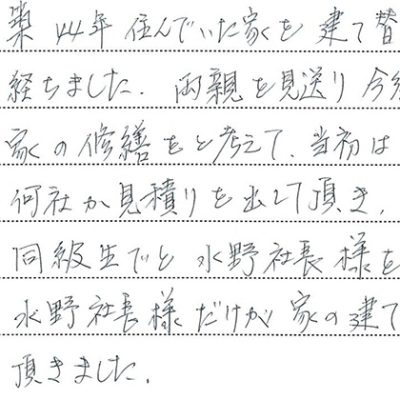 築44年 住んでいた家を 建て替
経ちました. 両親を見送り 今
家の修繕をと考えて、当初は
何社か見積りを出して頂き、
同級生でと 水野社長様を
水野社長様だけが 家の建て
頂きました.